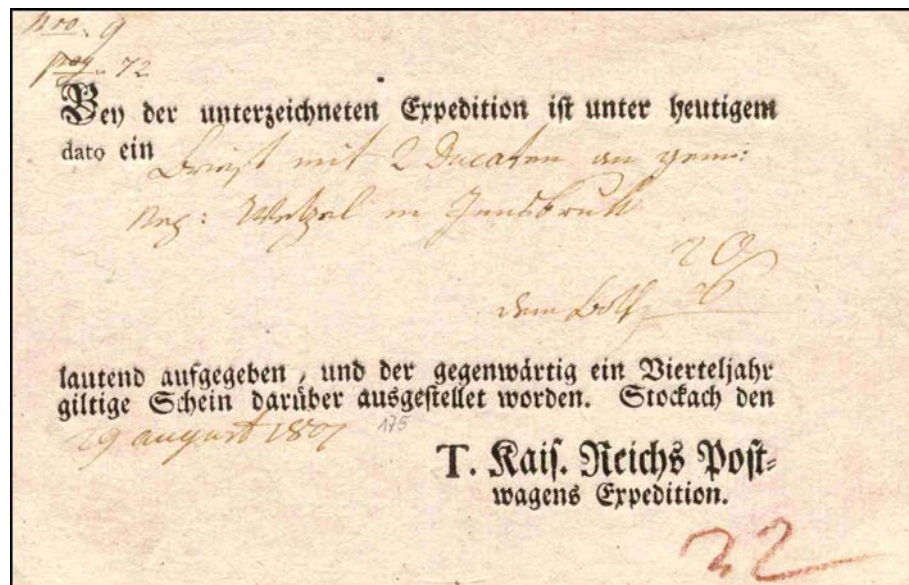 Nro. 9
pag. 72
Bey der unterzeichneten Expedition ist unter heutigem
dato ein
Brief mit 2 Ducaten an
Wetzel in Innsbruck
20
dem 6
lautend aufgegeben, und der gegenwärtig ein Vierteljahr
giltige Schein darüber ausgestellet worden. Stockach den
29 august 1801 175
T. Kais. Reichs Post=
wagens Expedition.
22